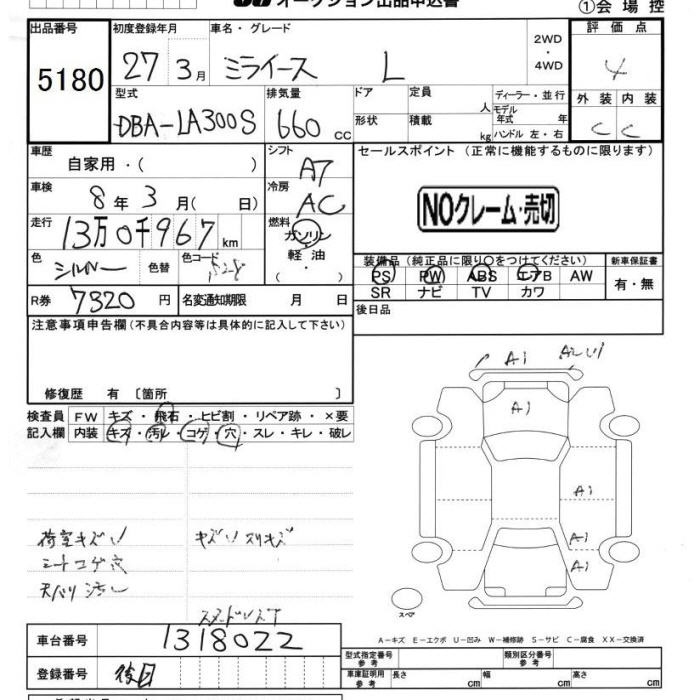 オークション出品申込書
①会場控
出品番号 初度登録年月 車名・グレード 2WD・4WD 評価点
5180 27年3月 ミライース L 4
型式 排気量 ドア 定員 人 ディーラー・並行 外装 内装
DBA-LA300S 660cc 形状 積載 kg モデル年式 年 ハンドル 左・右 C C
車歴 自家用・( ) シフト AT セールスポイント (正常に機能するものに限ります)
車検 8年3月( 日) 冷房 AC
NOクレーム・売切
走行 13万0千967km 燃料 ガソリン 軽油 ・( )
色 シルバー 色替 色コード
装備品 (純正品に限り○をつけてください) 新車保証書
PS PW ABS エアB AW 有・無
SR ナビ TV カワ
R券 7320円 名変通知期限 月 日 後日品
注意事項申告欄(不具合内容等は具体的に記入して下さい)
修復歴 有 〔箇所 〕
検査員 FW キズ・飛石・ヒビ割・リペア跡・×要
記入欄 内装 キズ・汚レ・コゲ・穴・スレ・キレ・破レ
A1
A1
A1
A1
A1
荷室キズ
シートコゲ穴
天バリ汚レ
スペア
A-キズ E-エクボ U-凹み W-補修跡 S-サビ C-腐食 XX-交換済
車台番号 1318022
型式指定番号 参考 類別区分番号 参考
登録番号 後日
車庫証明用 参考 長さ cm 幅 cm 高さ cm